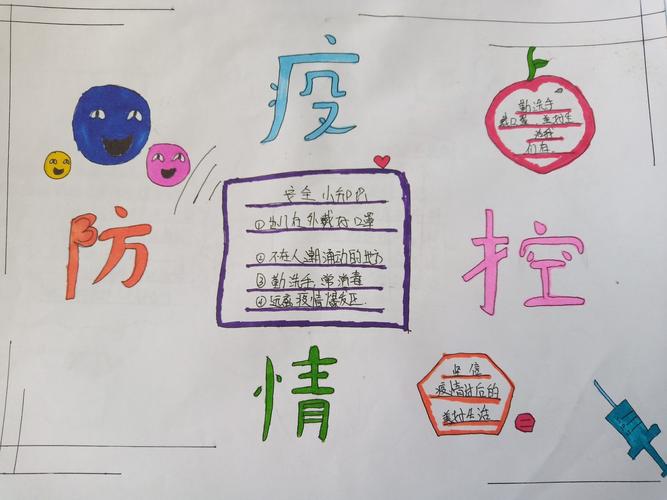 疫
情
防
控
勤洗手
戴口罩,美好生
们在.
安全小知识
①出门在外戴好口罩
②不在人潮涌动的地方
③勤洗手,常消毒
④远离疫情爆发区.
坚信
疫情过后的
美好生活